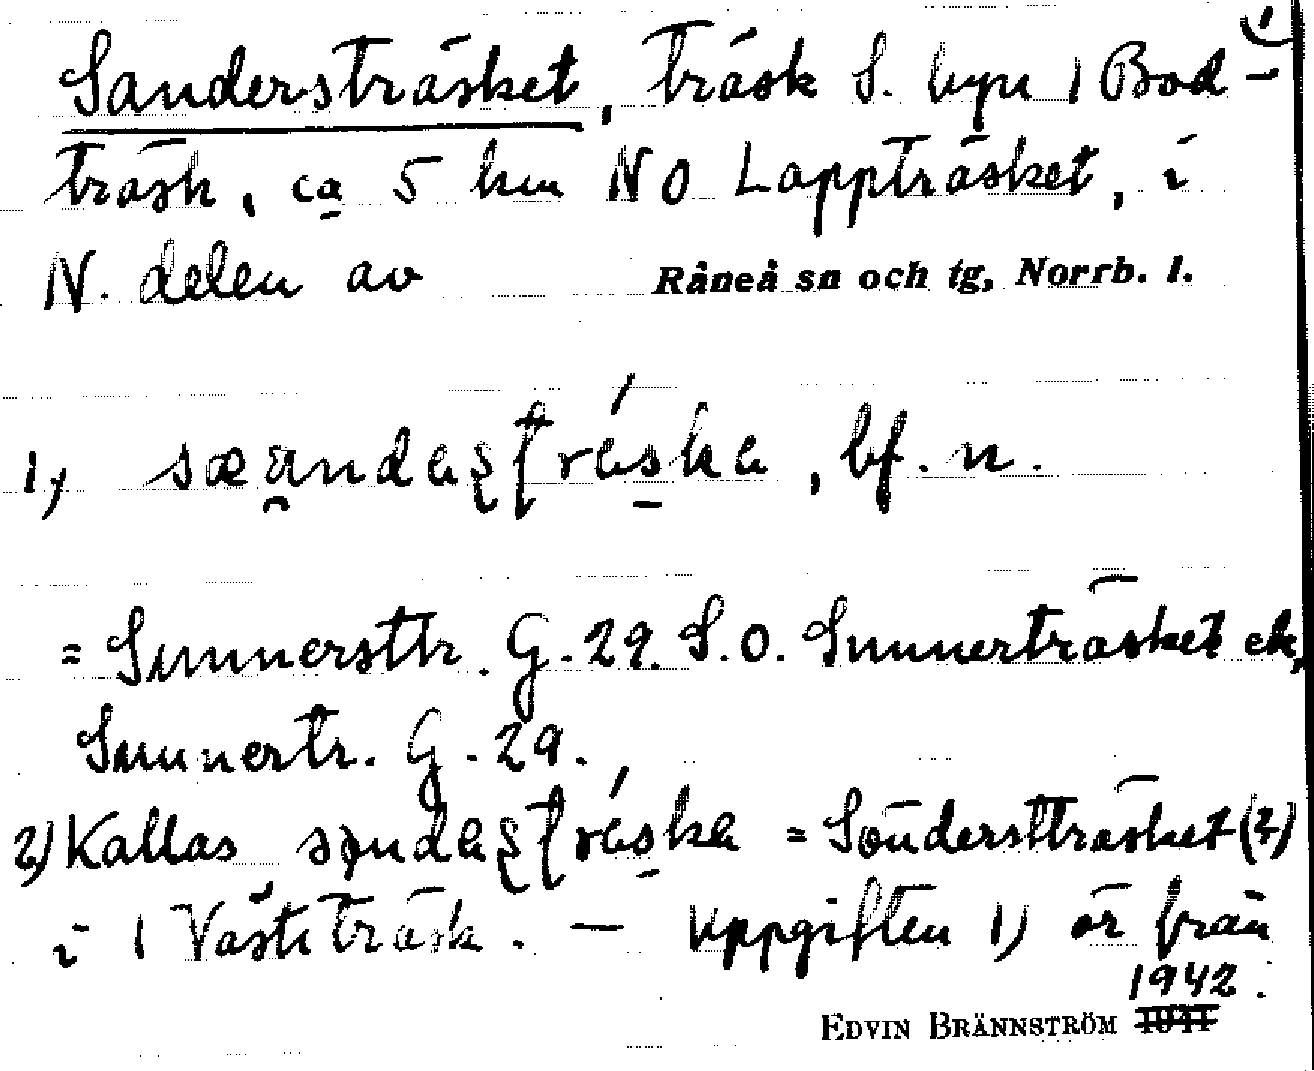 Sandersträsket, träsk S. byn 1 Bod-
träsk, ca 5 km NO Lappträsket, i
N. delen av Råneå sn och tg, Norrb. l.
1) bf. n.
= Sunnersttr. G. 29. S.O. Sunnerträsket ek,
Sunnertr. G. 29.
2) Kallas = Sönderstträsket (?)
i 1 Västiträsk. — Uppgiften 1) är från
1942.
EDVIN BRÄNNSTRÖM 1941